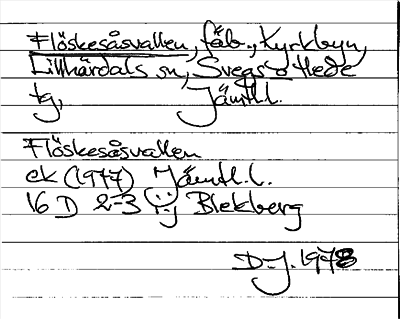 Flöskesåsvallen, fäb., Kyrkbyn,
Lillhärdals sn, Svegs o Hede
tg, Jämtl.l.
Flöskesåsvallen
ek (1977) Jämtl.l.
16 D 2-3 i-j Blekberg
D-J. 1978